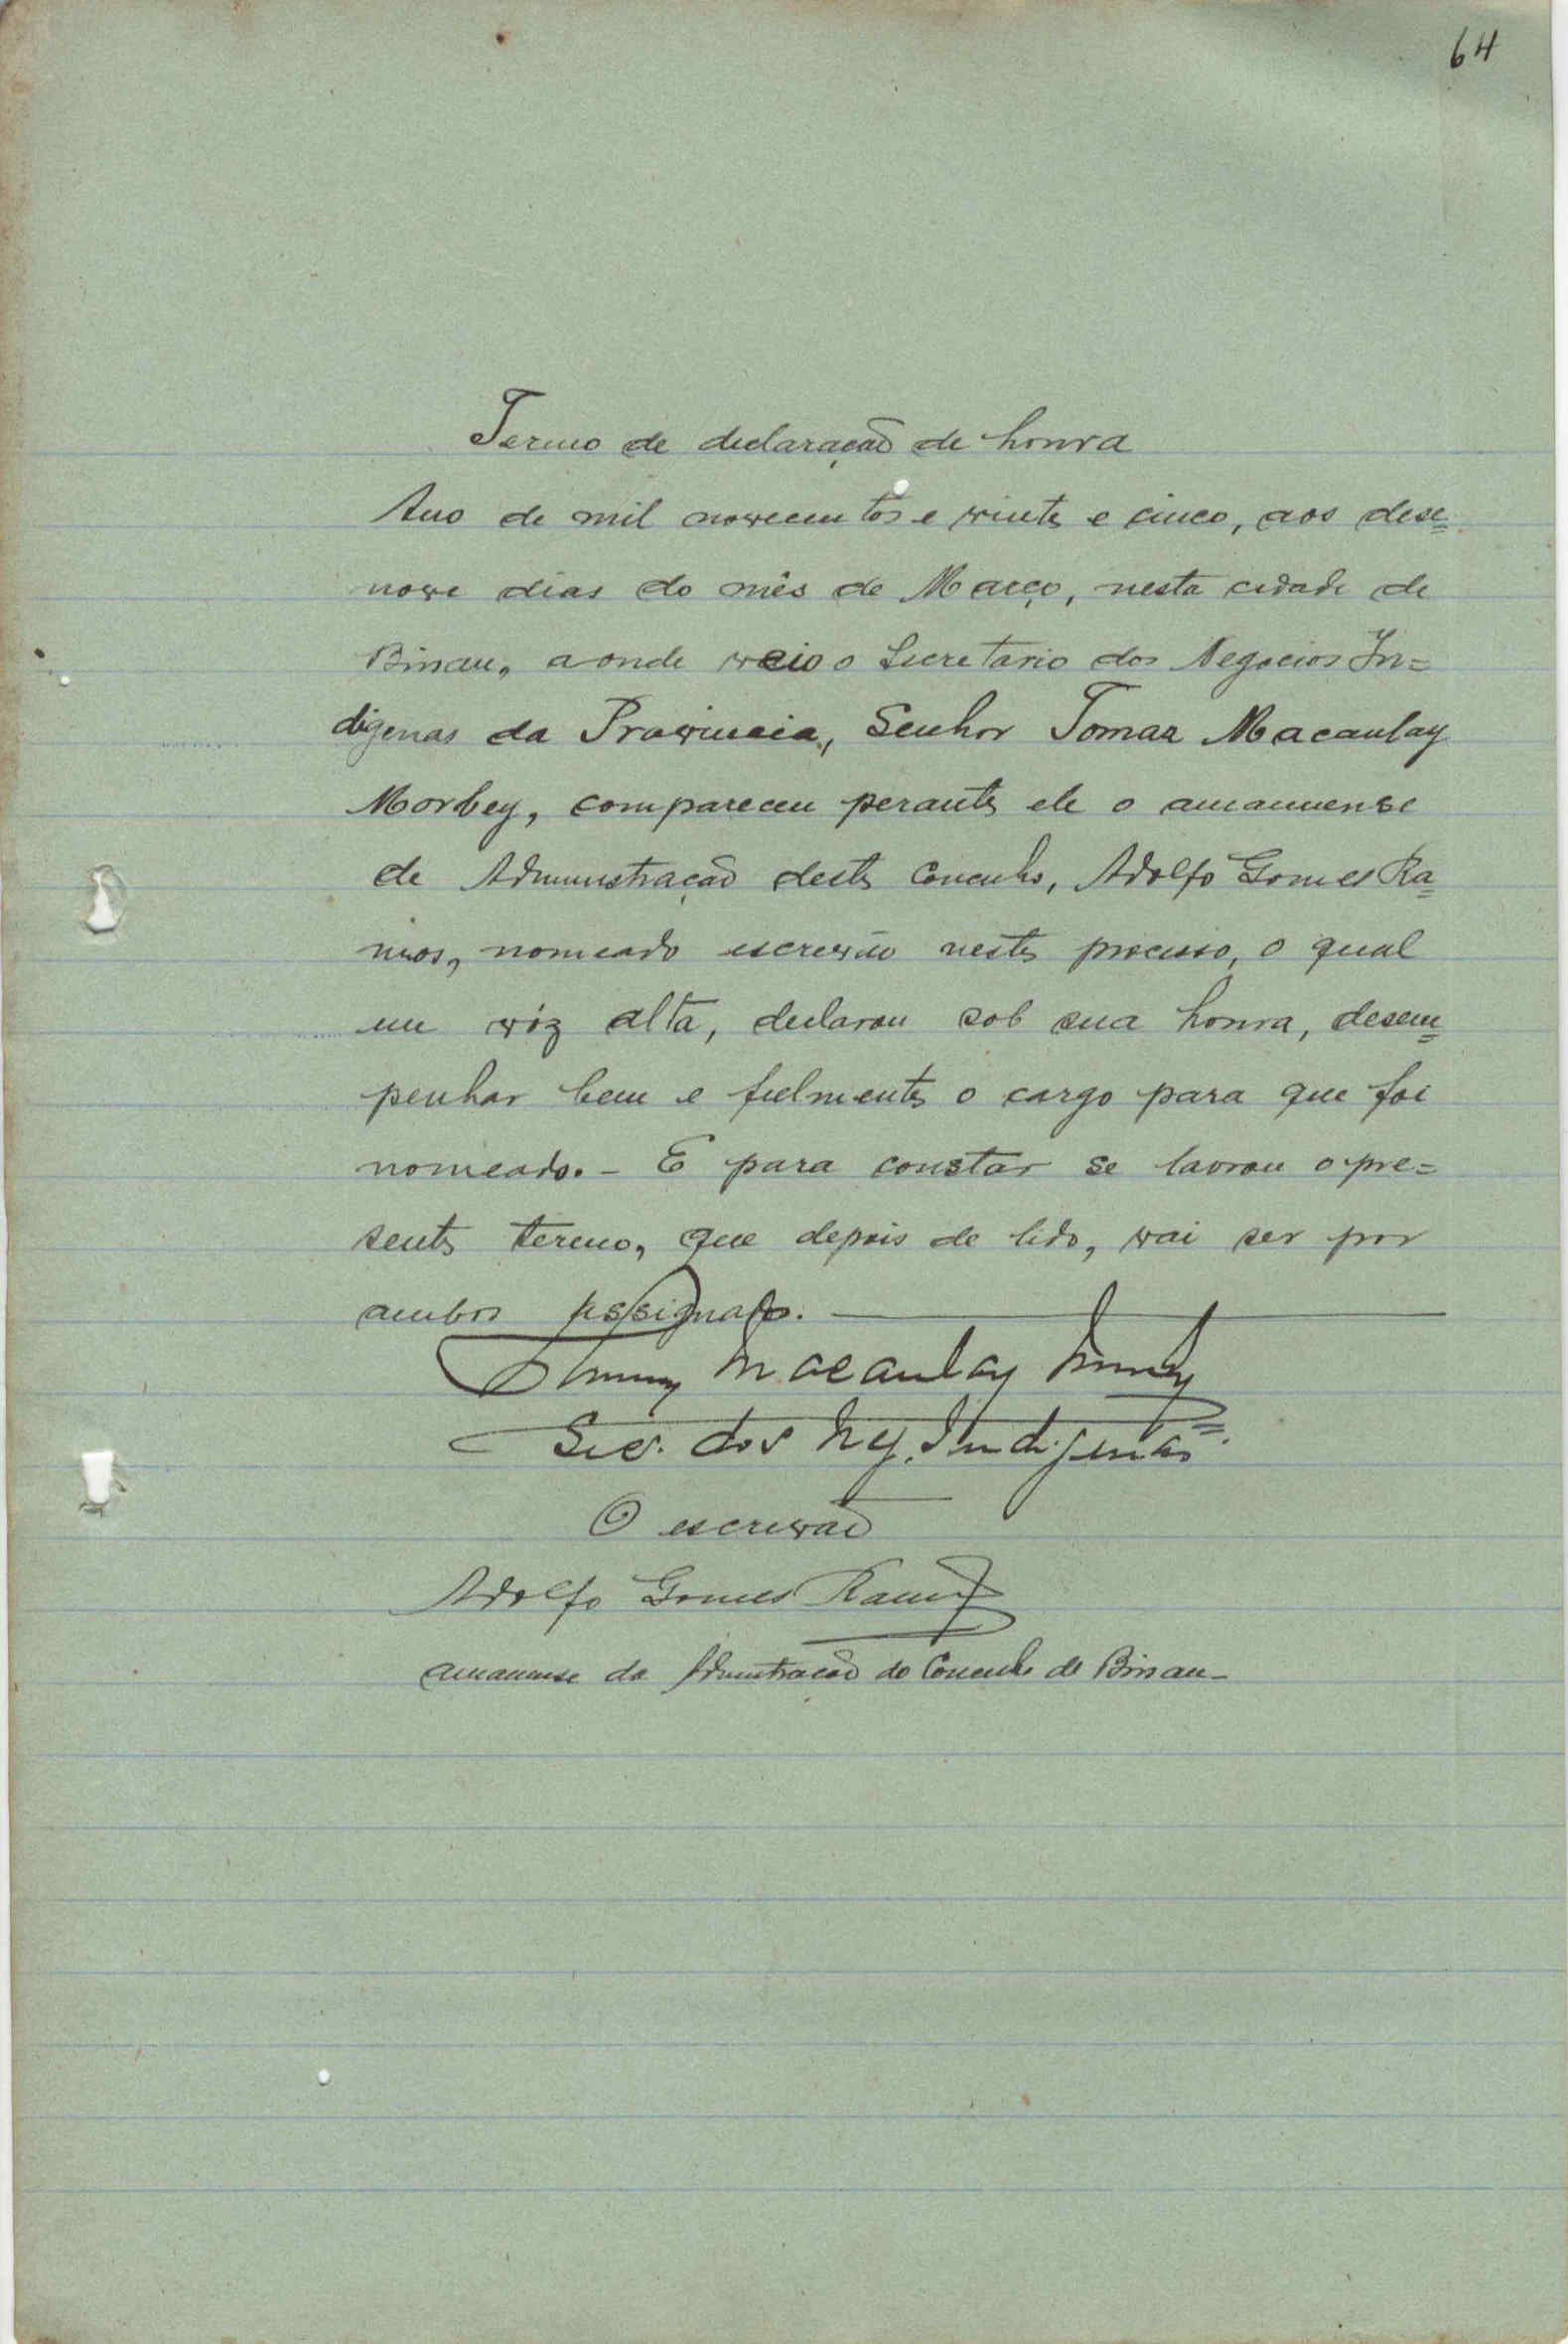 64
Termo de declaração de honra
Ano de mil novecentos e vinte e cinco, aos dese=
nove dias do mês de Março, nesta cidade de
Bissau, aonde veio o Secretario dos Negocios In=
digenas da Provincia, Senhor Tomaz Macaulay
Morbey, compareceu perante ele o amanuense
de Administração deste Concelho, Adolfo Gomes Ra=
mos, nomeado escrivão neste processo, o qual
em vóz alta, declarou sob sua honra, desem=
penhar bem e fielmente o cargo para que foi
nomeado. - E para constar se lavrou o pre=
sente termo, que depois de lido, vai ser por
ambos assignado.
Macaulay Morbey
Sec. dos Neg. Indigenas
O escrivão
Adolfo Gomes Ramos
amanuense da Administração do Concelho de Bissau -